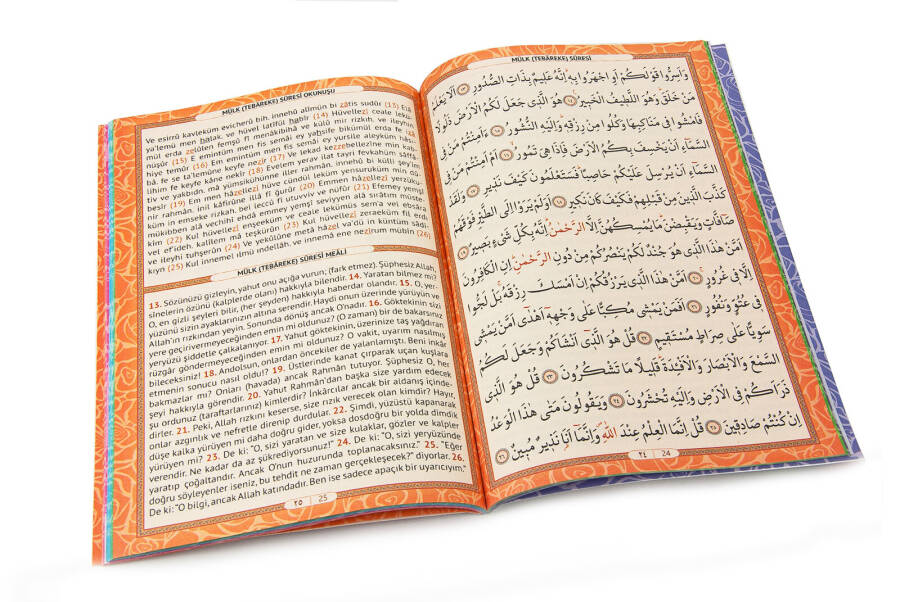 MÜLK (TEBÂREKE) SÛRESİ
وَاَسِرُّوا قَوْلَكُمْ اَوِ اجْهَرُوا بِهٖ اِنَّهُ عَلٖيمٌ بِذَاتِ الصُّدُورِ ﴿١٣﴾ اَلَا يَعْلَمُ
مَنْ خَلَقَ وَهُوَ اللَّطٖيفُ الْخَبٖيرُ ﴿١٤﴾ هُوَ الَّذٖى جَعَلَ لَكُمُ الْاَرْضَ ذَلُولًا
فَامْشُوا فٖى مَنَاكِبِهَا وَكُلُوا مِنْ رِزْقِهٖ وَاِلَيْهِ النُّشُورُ ﴿١٥﴾ ءَاَمِنْتُمْ مَنْ فِى
السَّمَٓاءِ اَنْ يَخْسِفَ بِكُمُ الْاَرْضَ فَاِذَا هِىَ تَمُورُ ﴿١٦﴾ اَمْ اَمِنْتُمْ مَنْ فِى
السَّمَٓاءِ اَنْ يُرْسِلَ عَلَيْكُمْ حَاصِبًا فَسَتَعْلَمُونَ كَيْفَ نَذٖيرِ ﴿١٧﴾ وَلَقَدْ
كَذَّبَ الَّذٖينَ مِنْ قَبْلِهِمْ فَكَيْفَ كَانَ نَكٖيرِ ﴿١٨﴾ اَوَلَمْ يَرَوْا اِلَى الطَّيْرِ فَوْقَهُمْ
صَٓافَّاتٍ وَيَقْبِضْنَ مَا يُمْسِكُهُنَّ اِلَّا الرَّحْمٰنُ اِنَّهُ بِكُلِّ شَىْءٍ بَصٖيرٌ ﴿١٩﴾
اَمَّنْ هٰذَا الَّذٖى هُوَ جُنْدٌ لَكُمْ يَنْصُرُكُمْ مِنْ دُونِ الرَّحْمٰنِ اِنِ الْكَافِرُونَ
اِلَّا فٖى غُرُورٍ ﴿٢٠﴾ اَمَّنْ هٰذَا الَّذٖى يَرْزُقُكُمْ اِنْ اَمْسَكَ رِزْقَهُ بَلْ لَجُّوا
فٖى عُتُوٍّ وَنُفُورٍ ﴿٢١﴾ اَفَمَنْ يَمْشٖى مُكِبًّا عَلٰى وَجْهِهٖ اَهْدٰٓى اَمَّنْ يَمْشٖى
سَوِيًّا عَلٰى صِرَاطٍ مُسْتَقٖيمٍ ﴿٢٢﴾ قُلْ هُوَ الَّذٖٓى اَنْشَاَكُمْ وَجَعَلَ لَكُمُ
السَّمْعَ وَالْاَبْصَارَ وَالْاَفْـِٔدَةَ قَلٖيلًا مَا تَشْكُرُونَ ﴿٢٣﴾ قُلْ هُوَ الَّذٖى
ذَرَاَكُمْ فِى الْاَرْضِ وَاِلَيْهِ تُحْشَرُونَ ﴿٢٤﴾ وَيَقُولُونَ مَتٰى هٰذَا الْوَعْدُ
اِنْ كُنْتُمْ صَادِقٖينَ ﴿٢٥﴾ قُلْ اِنَّمَا الْعِلْمُ عِنْدَ اللّٰهِ وَاِنَّمَٓا اَنَا۬ نَذٖيرٌ مُبٖينٌ ﴿٢٦﴾
٢٤ 24
MÜLK (TEBÂREKE) SÛRESİ OKUNUŞU
Ve esirrû kavleküm evicherû bih, innehû alîmün bi zâtis sudûr (13) Elâ
ya'lemü men halak, ve hüvel latîful habîr (14) Hüvellezî ceale lekü
mül erda zelûlen femşû fî menâkibihâ ve külû mir rizkıh, ve ileyhin
nüşûr (15) E emintüm men fis semâi ey yahsife bikümül erda fe izâ
hiye temûr (16) Em emintüm men fis semâi ey yursile aleyküm hâsi
bâ, fe se ta'lemûne keyfe nezîr (17) Ve lekad kezzebellezîne min kab
lihim fe keyfe kâne nekîr (18) Evelem yerav ilat tayri fevkahüm sâffâ
tiv ve yakbıdn, mâ yümsikühünne iller rahmân, innehû bi külli şey'im
besîr (19) Em men hâzellezî hüve cündül leküm yensuruküm min dû
nir rahmân, inil kâfirûne illâ fî ğurûr (20) Emmen hâzellezî yerzükü
küm in emseke rizkah, bel leccû fî utuvviv ve nüfûr (21) Efemey yemşî
mükibben alâ vechihî ehdâ emmey yemşî seviyyen alâ sırâtım müste
kîm (22) Kul hüvellezî enşeeküm ve ceale lekümüs sem'a vel ebsâra
vel ef'ideh, kalîlem mâ teşkürûn (23) Kul hüvellezî zeraeküm fil erdı
ve ileyhi tuhşerûn (24) Ve yekûlûne metâ hâzel va'dü in küntüm sâdi
kıyn (25) Kul innemel ılmü ındellâh, ve innemâ ene nezîrum mübîn (26)
MÜLK (TEBÂREKE) SÛRESİ MEÂLİ
13. Sözünüzü gizleyin, yahut onu açığa vurun; (fark etmez). Şüphesiz Allah,
sînelerin özünü (kalplerde olanı) hakkıyla bilendir. 14. Yaratan bilmez mi?
O, en gizli şeyleri bilir, (her şeyden) hakkıyla haberdar olandır. 15. O, yer-
yüzünü sizin ayaklarınızın altına serendir. Haydi onun üzerinde yürüyün ve
Allah'ın rızkından yeyin. Sonunda dönüş ancak O'nadır. 16. Göktekinin sizi
yere geçirivermeyeceğinden emin mi oldunuz? (O zaman) bir de bakarsınız
yeryüzü şiddetle çalkalanıyor. 17. Yahut göktekinin, üzerinize taş yağdıran
rüzgâr göndermeyeceğinden emin mi oldunuz? O vakit, uyarım nasılmış
bileceksiniz! 18. Andolsun, onlardan öncekiler de yalanlamıştı. Beni inkâr
etmenin sonucu nasıl oldu? 19. Üstlerinde kanat çırparak uçan kuşlara
bakmazlar mı? Onları (havada) ancak Rahman tutuyor. Şüphesiz O, her
şeyi hakkıyla görendir. 20. Yahut Rahmân'dan başka size yardım edecek
şu ordunuz (taraftarlarınız) kimlerdir? İnkârcılar ancak bir aldanış içinde-
dirler. 21. Peki, Allah rızkını keserse, size rızık verecek olan kimdir? Hayır,
onlar azgınlık ve nefretle direnip durdular. 22. Şimdi, yüzüstü kapanarak
düşe kalka yürüyen mi daha doğru gider, yoksa dosdoğru bir yolda dimdik
yürüyen mi? 23. De ki: "O, sizi yaratan ve size kulaklar, gözler ve kalpler
verendir. Ne kadar da az şükrediyorsunuz!" 24. De ki: "O, sizi yeryüzünde
yaratıp çoğaltandır. Ancak O'nun huzurunda toplanacaksınız." 25. "Eğer
doğru söyleyenler iseniz, bu tehdit ne zaman gerçekleşecek?" diyorlar. 26.
De ki: "O bilgi, ancak Allah katındadır. Ben ise sadece apaçık bir uyarıcıyım."
٢٥ 25